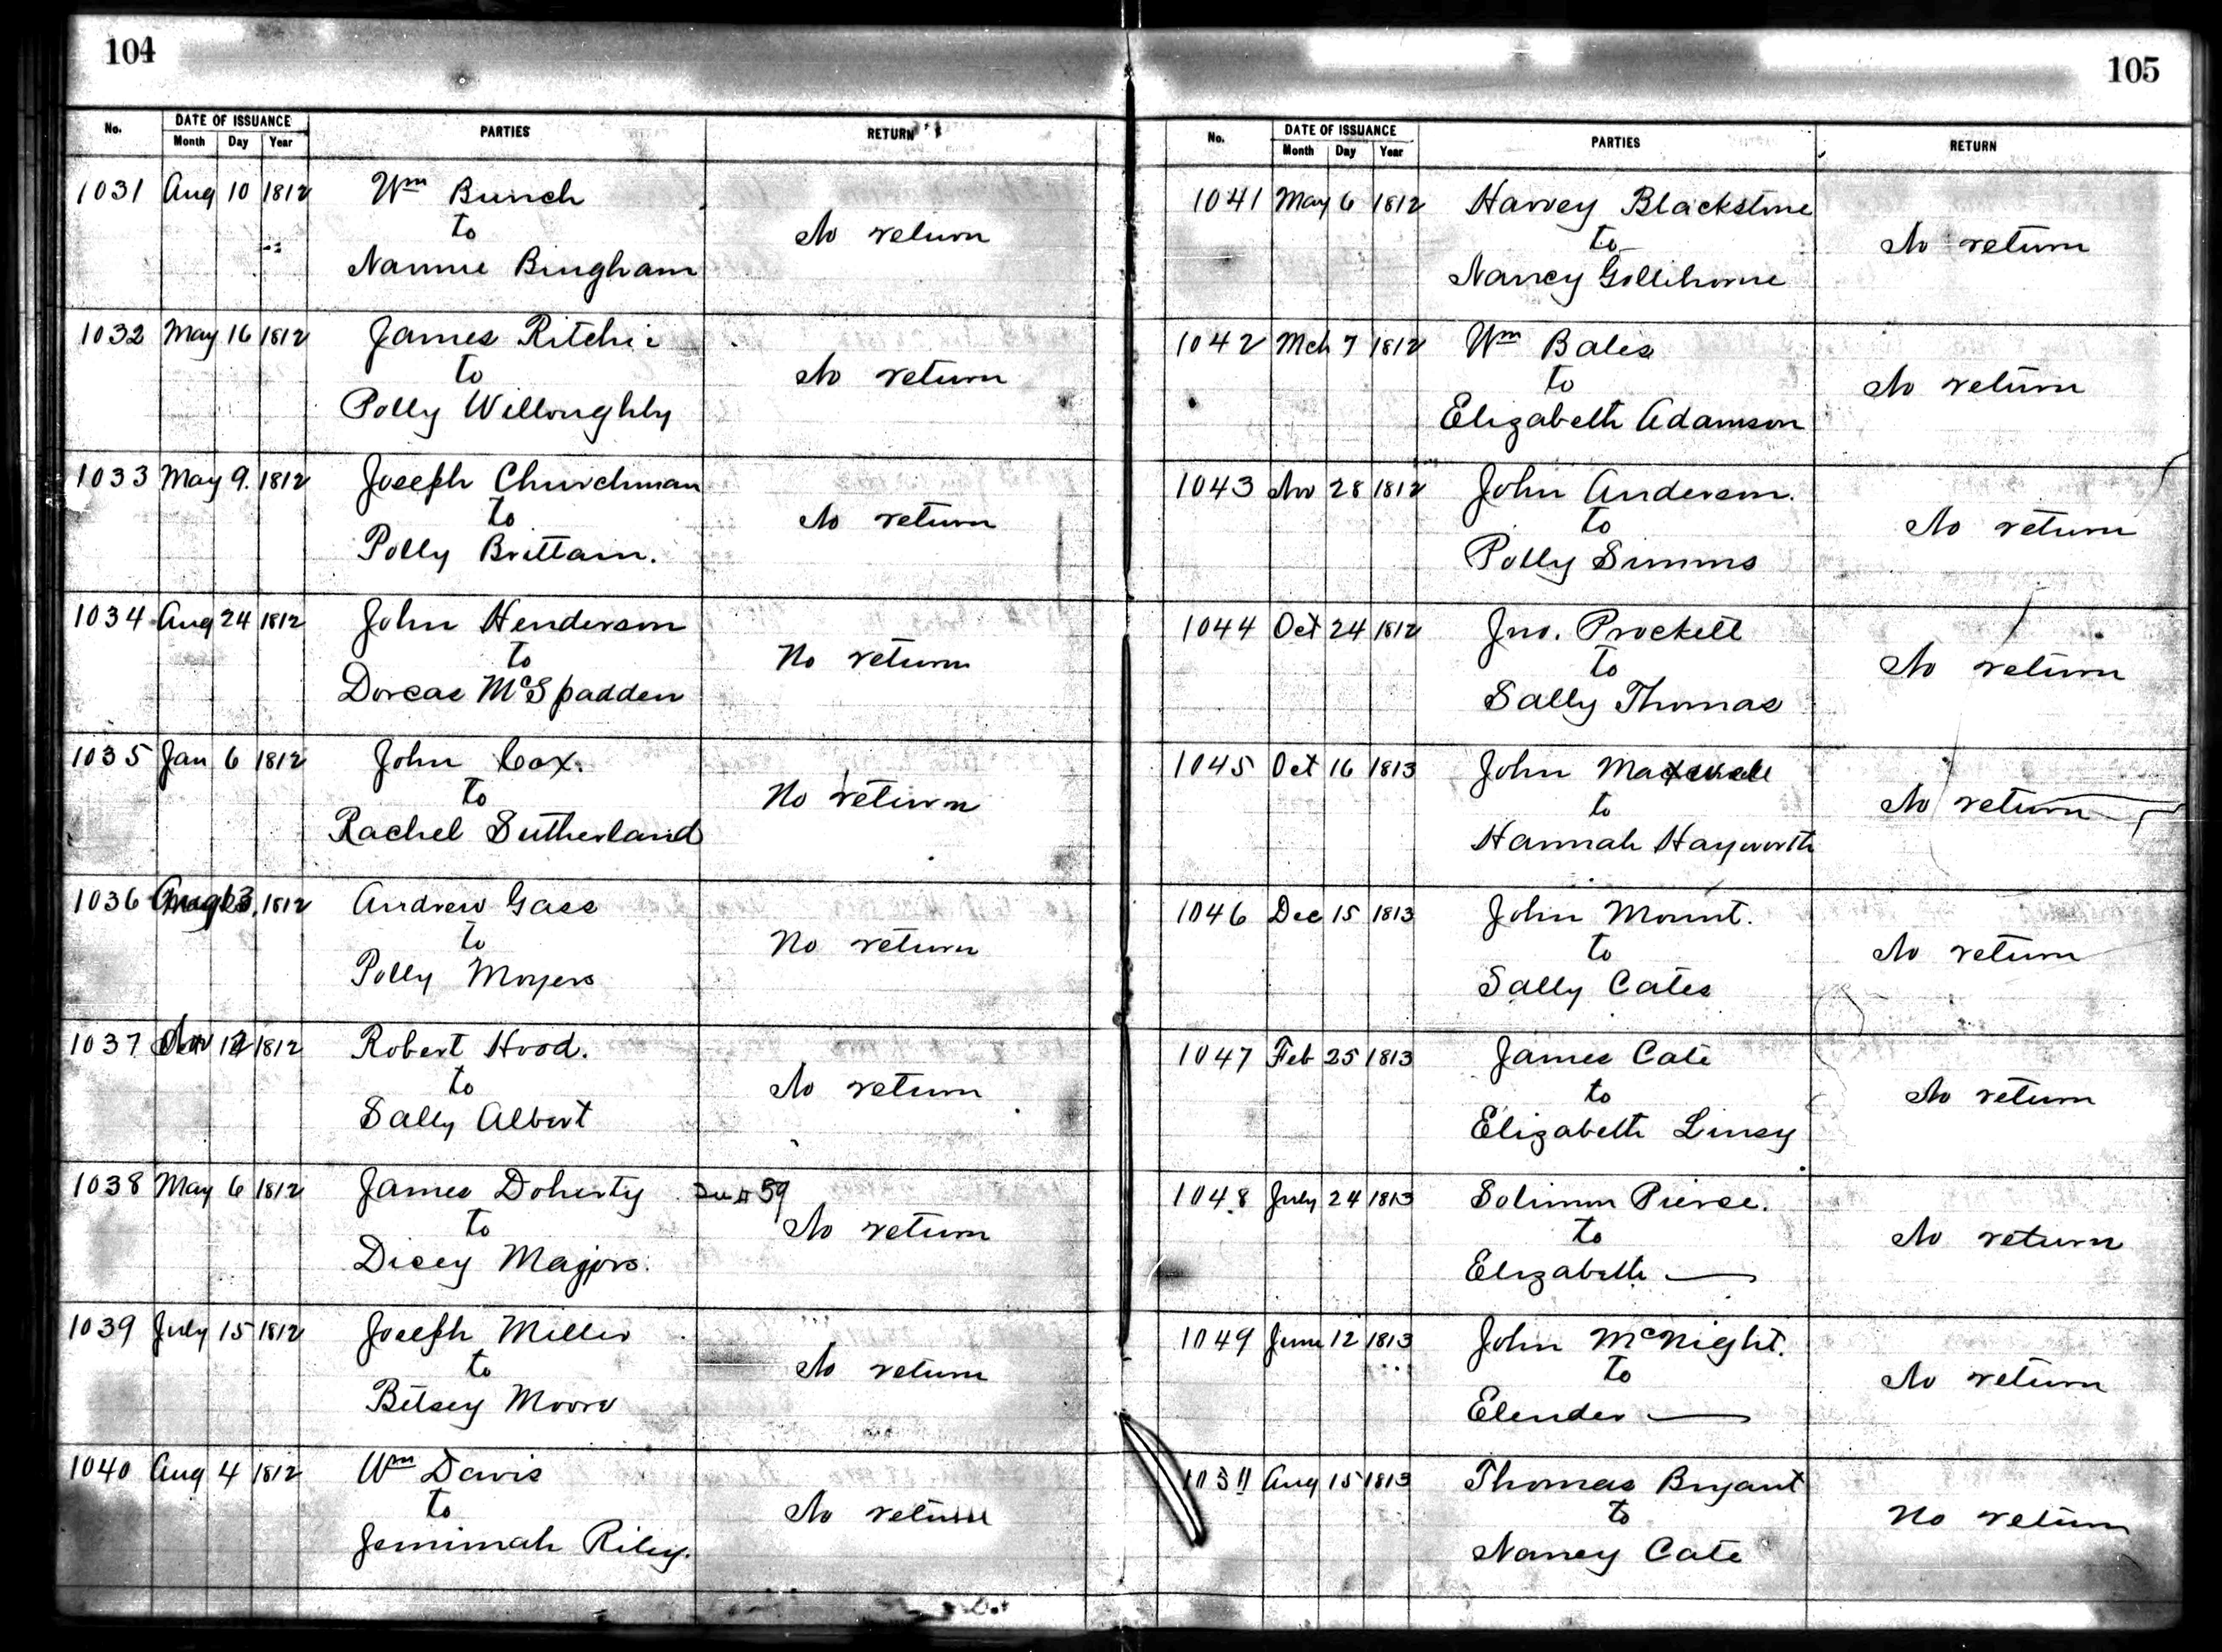 104
No. DATE OF ISSUANCE PARTIES RETURN
Month Day Year
1031 Aug 10 1812 Wm Bunch
to
No return
Nannie Bingham
1032 May 16 1812 James Ritchie
to
No return
Polly Willoughby
1033 May 9. 1812 Joseph Churchman
to
No return
Polly Brittain.
1034 Aug 24 1812 John Henderson
to
No return
Dorcas McSpadden
1035 Jan 6 1812 John Cox.
to
No return
Rachel Sutherland
1036 1812 Andrew Gass
to
No return
Polly Moyers
1037 12 1812 Robert Hood.
to
No return
Sally Albert
1038 May 6 1812 James Doherty See # 59
to
No return
Dicey Majors.
1039 July 15 1812 Joseph Miller
to
No return
Betsey Moore
1040 Aug 4 1812 Wm Davis
to
No return
Jemimah Riley.
105
No. DATE OF ISSUANCE PARTIES RETURN
Month Day Year
1041 May 6 1812 Harvey Blackstone
to
No return
Nancy Gollihorne
1042 Mch 7 1812 Wm Bales
to
No return
Elizabeth Adamson
1043 Nov 28 1812 John Anderson.
to
No return
Polly Simms
1044 Oct 24 1812 Jno. Prockett
to
No return
Sally Thomas
1045 Oct 16 1813 John Maxwell
to
No return
Hannah Hayworth
1046 Dec 15 1813 John Mount.
to
No return
Sally Cates
1047 Feb 25 1813 James Cate
to
No return
Elizabeth Linsy
1048 July 24 1813 Solimon Pierse.
to
No return
Elizabeth —
1049 June 12 1813 John McNight.
to
No return
Elender —
1050 Aug 15 1813 Thomas Bryant
to
No return
Nancy Cate